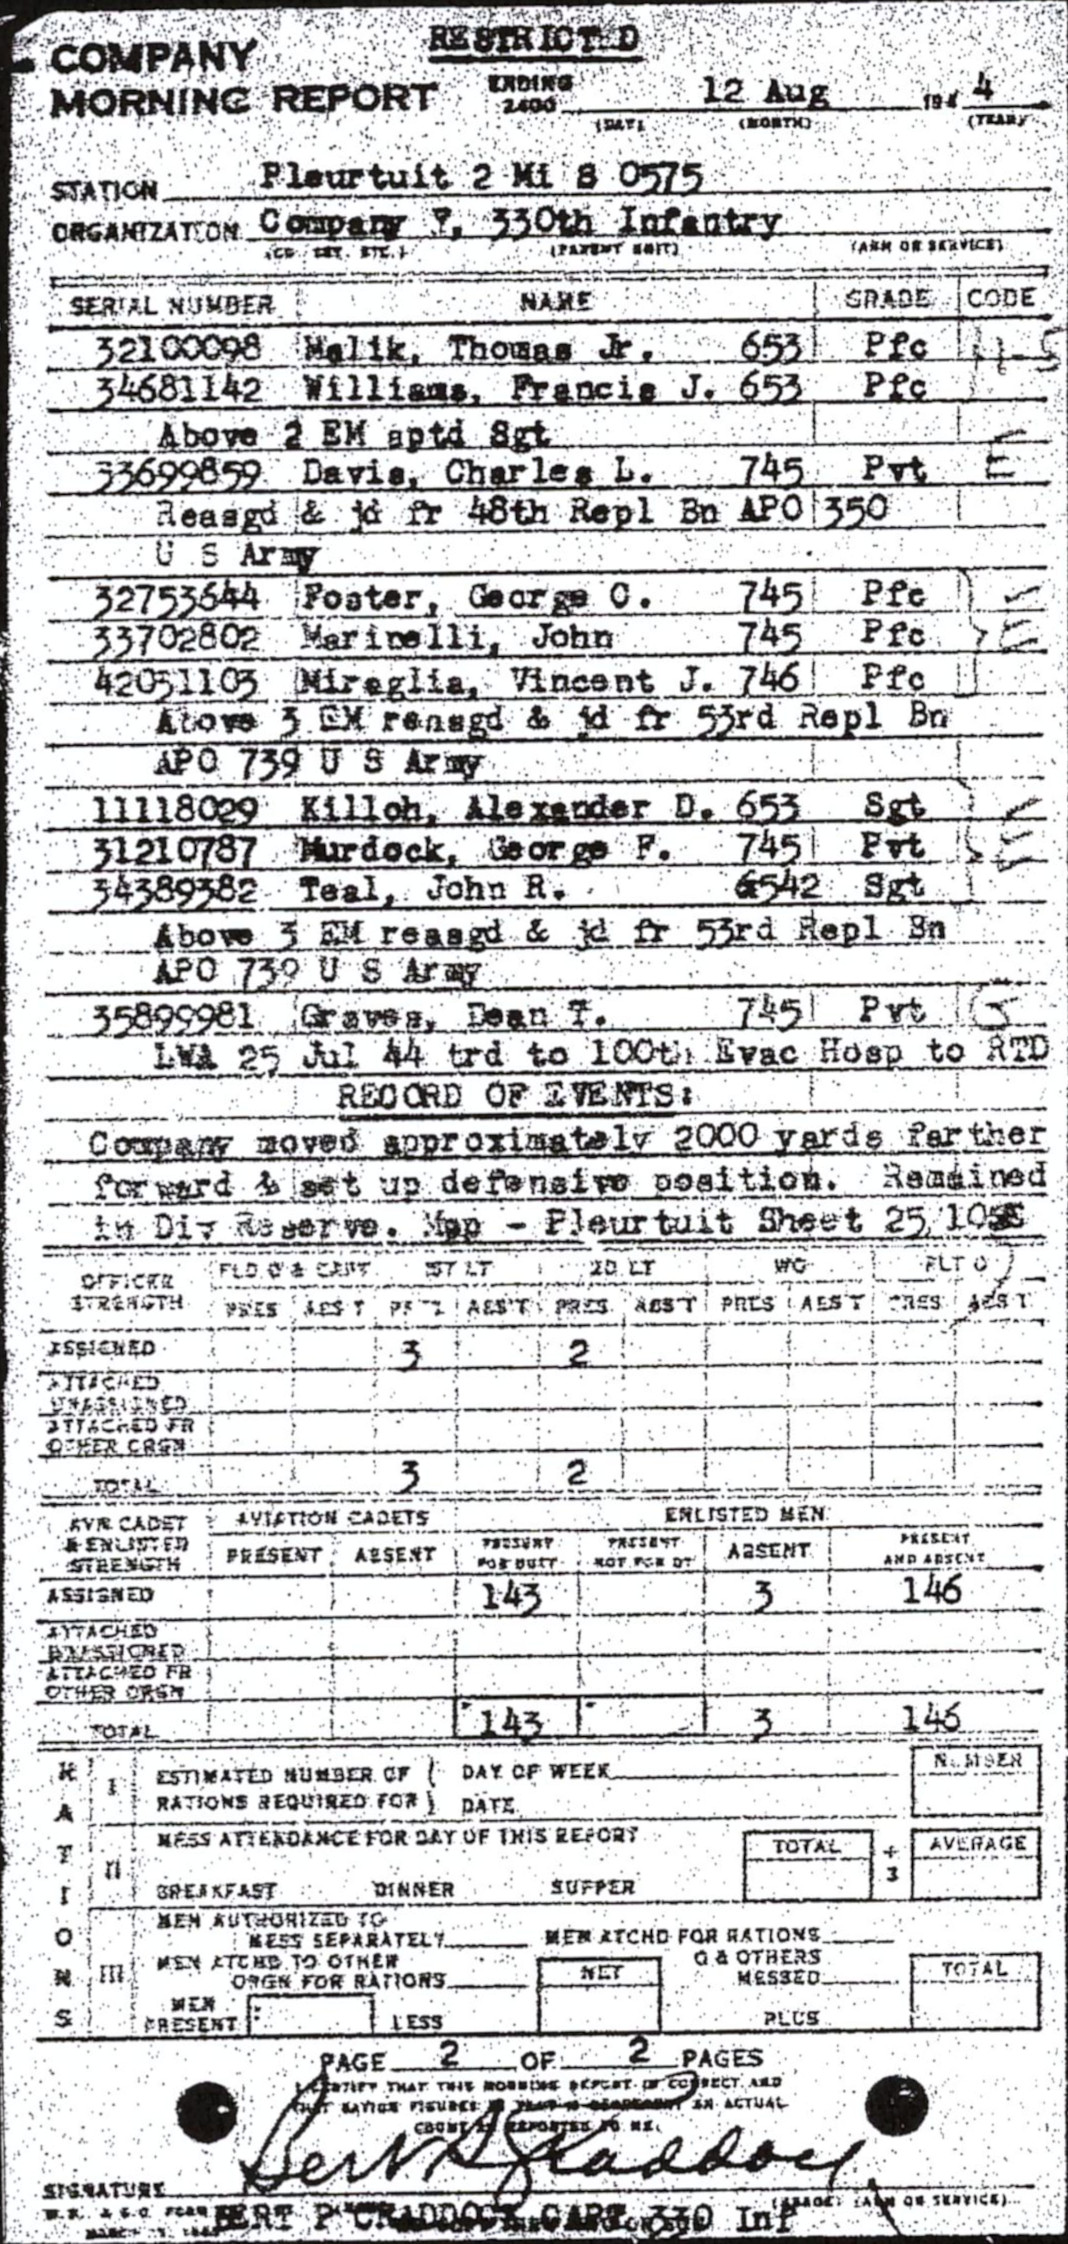 RESTRICTED
COMPANY
MORNING REPORT
ENDING
2400 12 Aug 194 4
(DAY) (MONTH) (YEAR)
STATION Pleurtuit 2 Mi S 0575
ORGANIZATION Company F, 330th Infantry
(PARENT UNIT) (ARM OR SERVICE)
SERIAL NUMBER NAME GRADE CODE
32100098 Malik, Thomas Jr. 653 Pfc
34681142 Williams, Francis J. 653 Pfc
Above 2 EM aptd Sgt
33699859 Davis, Charles L. 745 Pvt E
Reasgd & jd fr 48th Repl Bn APO 350
U S Army
32753644 Foster, George C. 745 Pfc
33702802 Marinelli, John 745 Pfc E
42031103 Miraglia, Vincent J. 746 Pfc
Above 3 EM reasgd & jd fr 53rd Repl Bn
APO 739 U S Army
11118029 Killoh, Alexander D. 653 Sgt
31210787 Murdock, George F. 745 Pvt E
34389382 Teal, John R. 6542 Sgt
Above 3 EM reasgd & jd fr 53rd Repl Bn
APO 739 U S Army
35899981 Graves, Dean T. 745 Pvt G
LWA 25 Jul 44 trd to 100th Evac Hosp to RTD
RECORD OF EVENTS:
Company moved approximately 2000 yards farther
forward & set up defensive position. Remained
in Div Reserve. Map - Pleurtuit Sheet 25, 105
OFFICER
STRENGTH
FLD O & CAPT 1ST LT 2D LT WO FLT O
PRES ABS'T PRES ABS'T PRES ABS'T PRES ABS'T PRES ABS'T
ASSIGNED 3 2
ATTACHED
UNASSIGNED
ATTACHED FR
OTHER ORGN
TOTAL 3 2
AVN CADET
& ENLISTED
STRENGTH
AVIATION CADETS ENLISTED MEN
PRESENT ABSENT PRESENT FOR DUTY PRESENT NOT FOR DY ABSENT PRESENT AND ABSENT
ASSIGNED 143 3 146
ATTACHED
UNASSIGNED
ATTACHED FR
OTHER ORGN
TOTAL 143 3 146
RATIONS
I ESTIMATED NUMBER OF DAY OF WEEK NUMBER
RATIONS REQUIRED FOR DATE
II MESS ATTENDANCE FOR DAY OF THIS REPORT TOTAL ÷ 3 AVERAGE
BREAKFAST DINNER SUPPER
III MEN AUTHORIZED TO
MESS SEPARATELY MEN ATCHD FOR RATIONS
MEN ATCHD TO OTHER
ORGN FOR RATIONS NET
& OTHERS
MESSED TOTAL
MEN
PRESENT LESS PLUS
PAGE 2 OF 2 PAGES
I CERTIFY THAT THIS MORNING REPORT IS CORRECT AND
THAT RATION FIGURES AN ACTUAL
COUNT AS REPORTED TO ME.
Bert P Craddock
SIGNATURE
(GRADE) (ARM OR SERVICE)
BERT P CRADDOCK CAPT 330 Inf